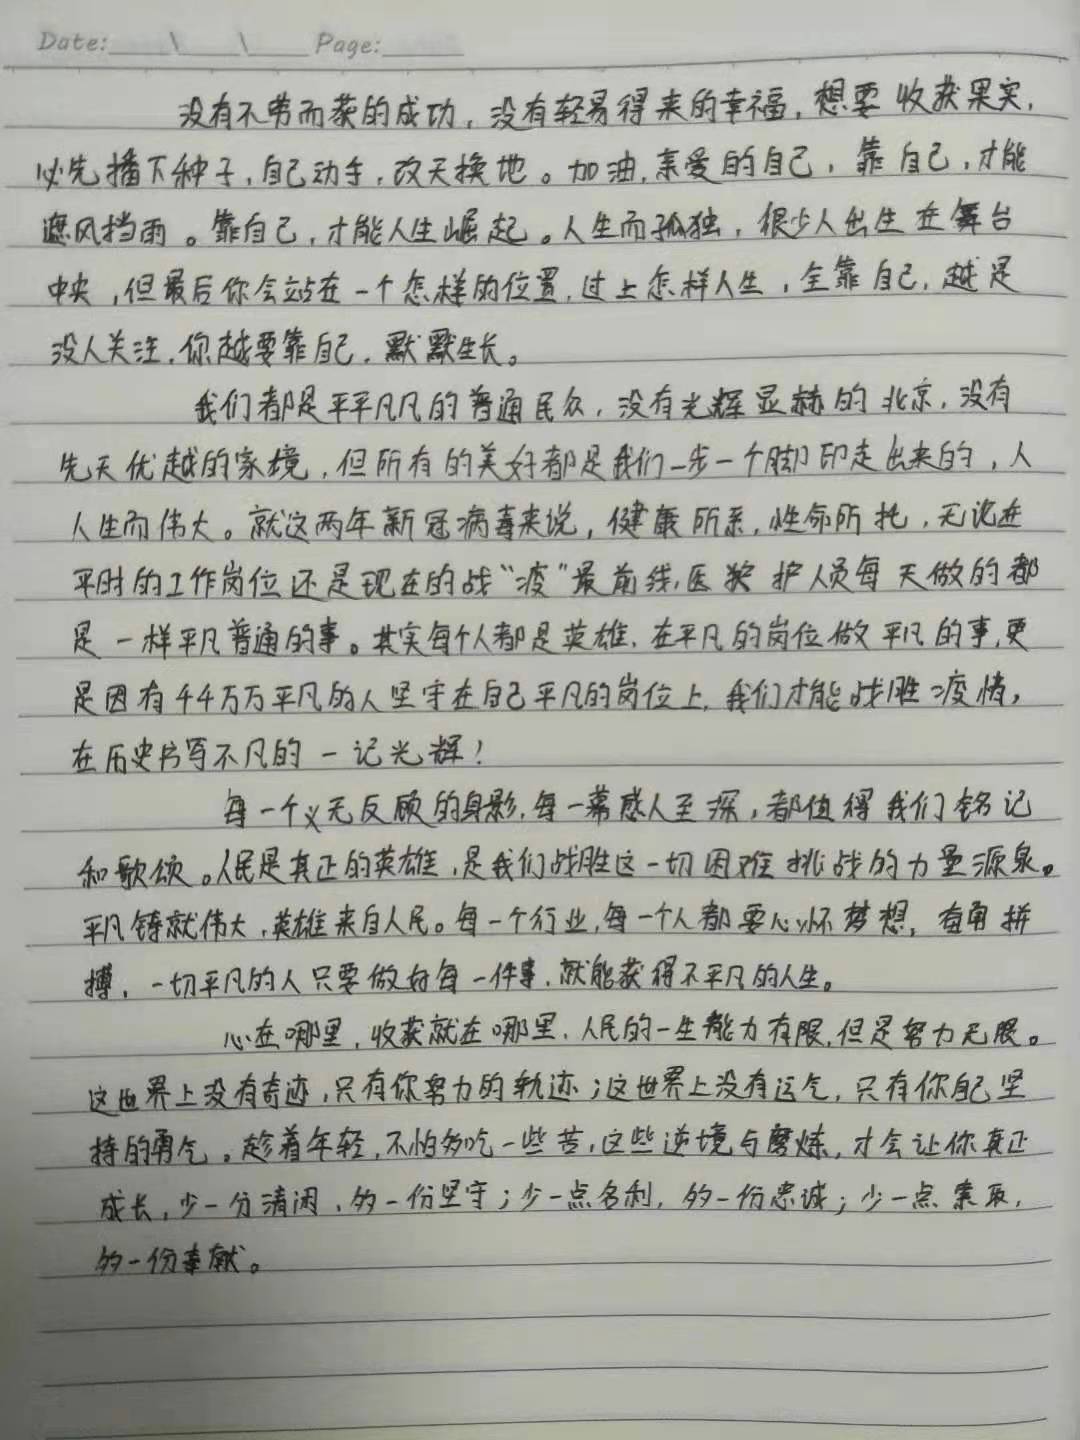 Date:____\____\____ Page:______
没有不劳而获的成功，没有轻易得来的幸福，想要收获果实，
必先播下种子，自己动手，改天换地。加油，亲爱的自己，靠自己，才能
遮风挡雨。靠自己，才能人生崛起。人生而孤独，很少人出生在舞台
中央，但最后你会站在一个怎样的位置，过上怎样人生，全靠自己，越是
没人关注，你越要靠自己，默默生长。
我们都是平平凡凡的普通民众，没有光辉显赫的北京，没有
先天优越的家境，但所有的美好都是我们一步一个脚印走出来的，人
人生而伟大。就这两年新冠病毒来说，健康所系，性命所托，无论在
平时的工作岗位还是现在的战“疫”最前线，医 护人员每天做的都
是一样平凡普通的事。其实每个人都是英雄，在平凡的岗位做平凡的事，更
是因有44万万平凡的人坚守在自己平凡的岗位上，我们才能战胜疫情，
在历史书写不凡的一记光辉！
每一个义无反顾的身影，每一幕感人至深，都值得我们铭记
和歌颂。人民是真正的英雄，是我们战胜这一切困难挑战的力量源泉。
平凡铸就伟大，英雄来自人民。每一个行业，每一个人都要心怀梦想，奋勇拼
搏，一切平凡的人只要做好每一件事，就能获得不平凡的人生。
心在哪里，收获就在哪里，人民的一生能力有限，但是努力无限。
这世界上没有奇迹，只有你努力的轨迹；这世界上没有运气，只有你自己坚
持的勇气。趁着年轻，不怕多吃一些苦，这些逆境与磨炼，才会让你真正
成长，少一分清闲，多一份坚守；少一点名利，多一份忠诚；少一点索取，
多一份奉献。